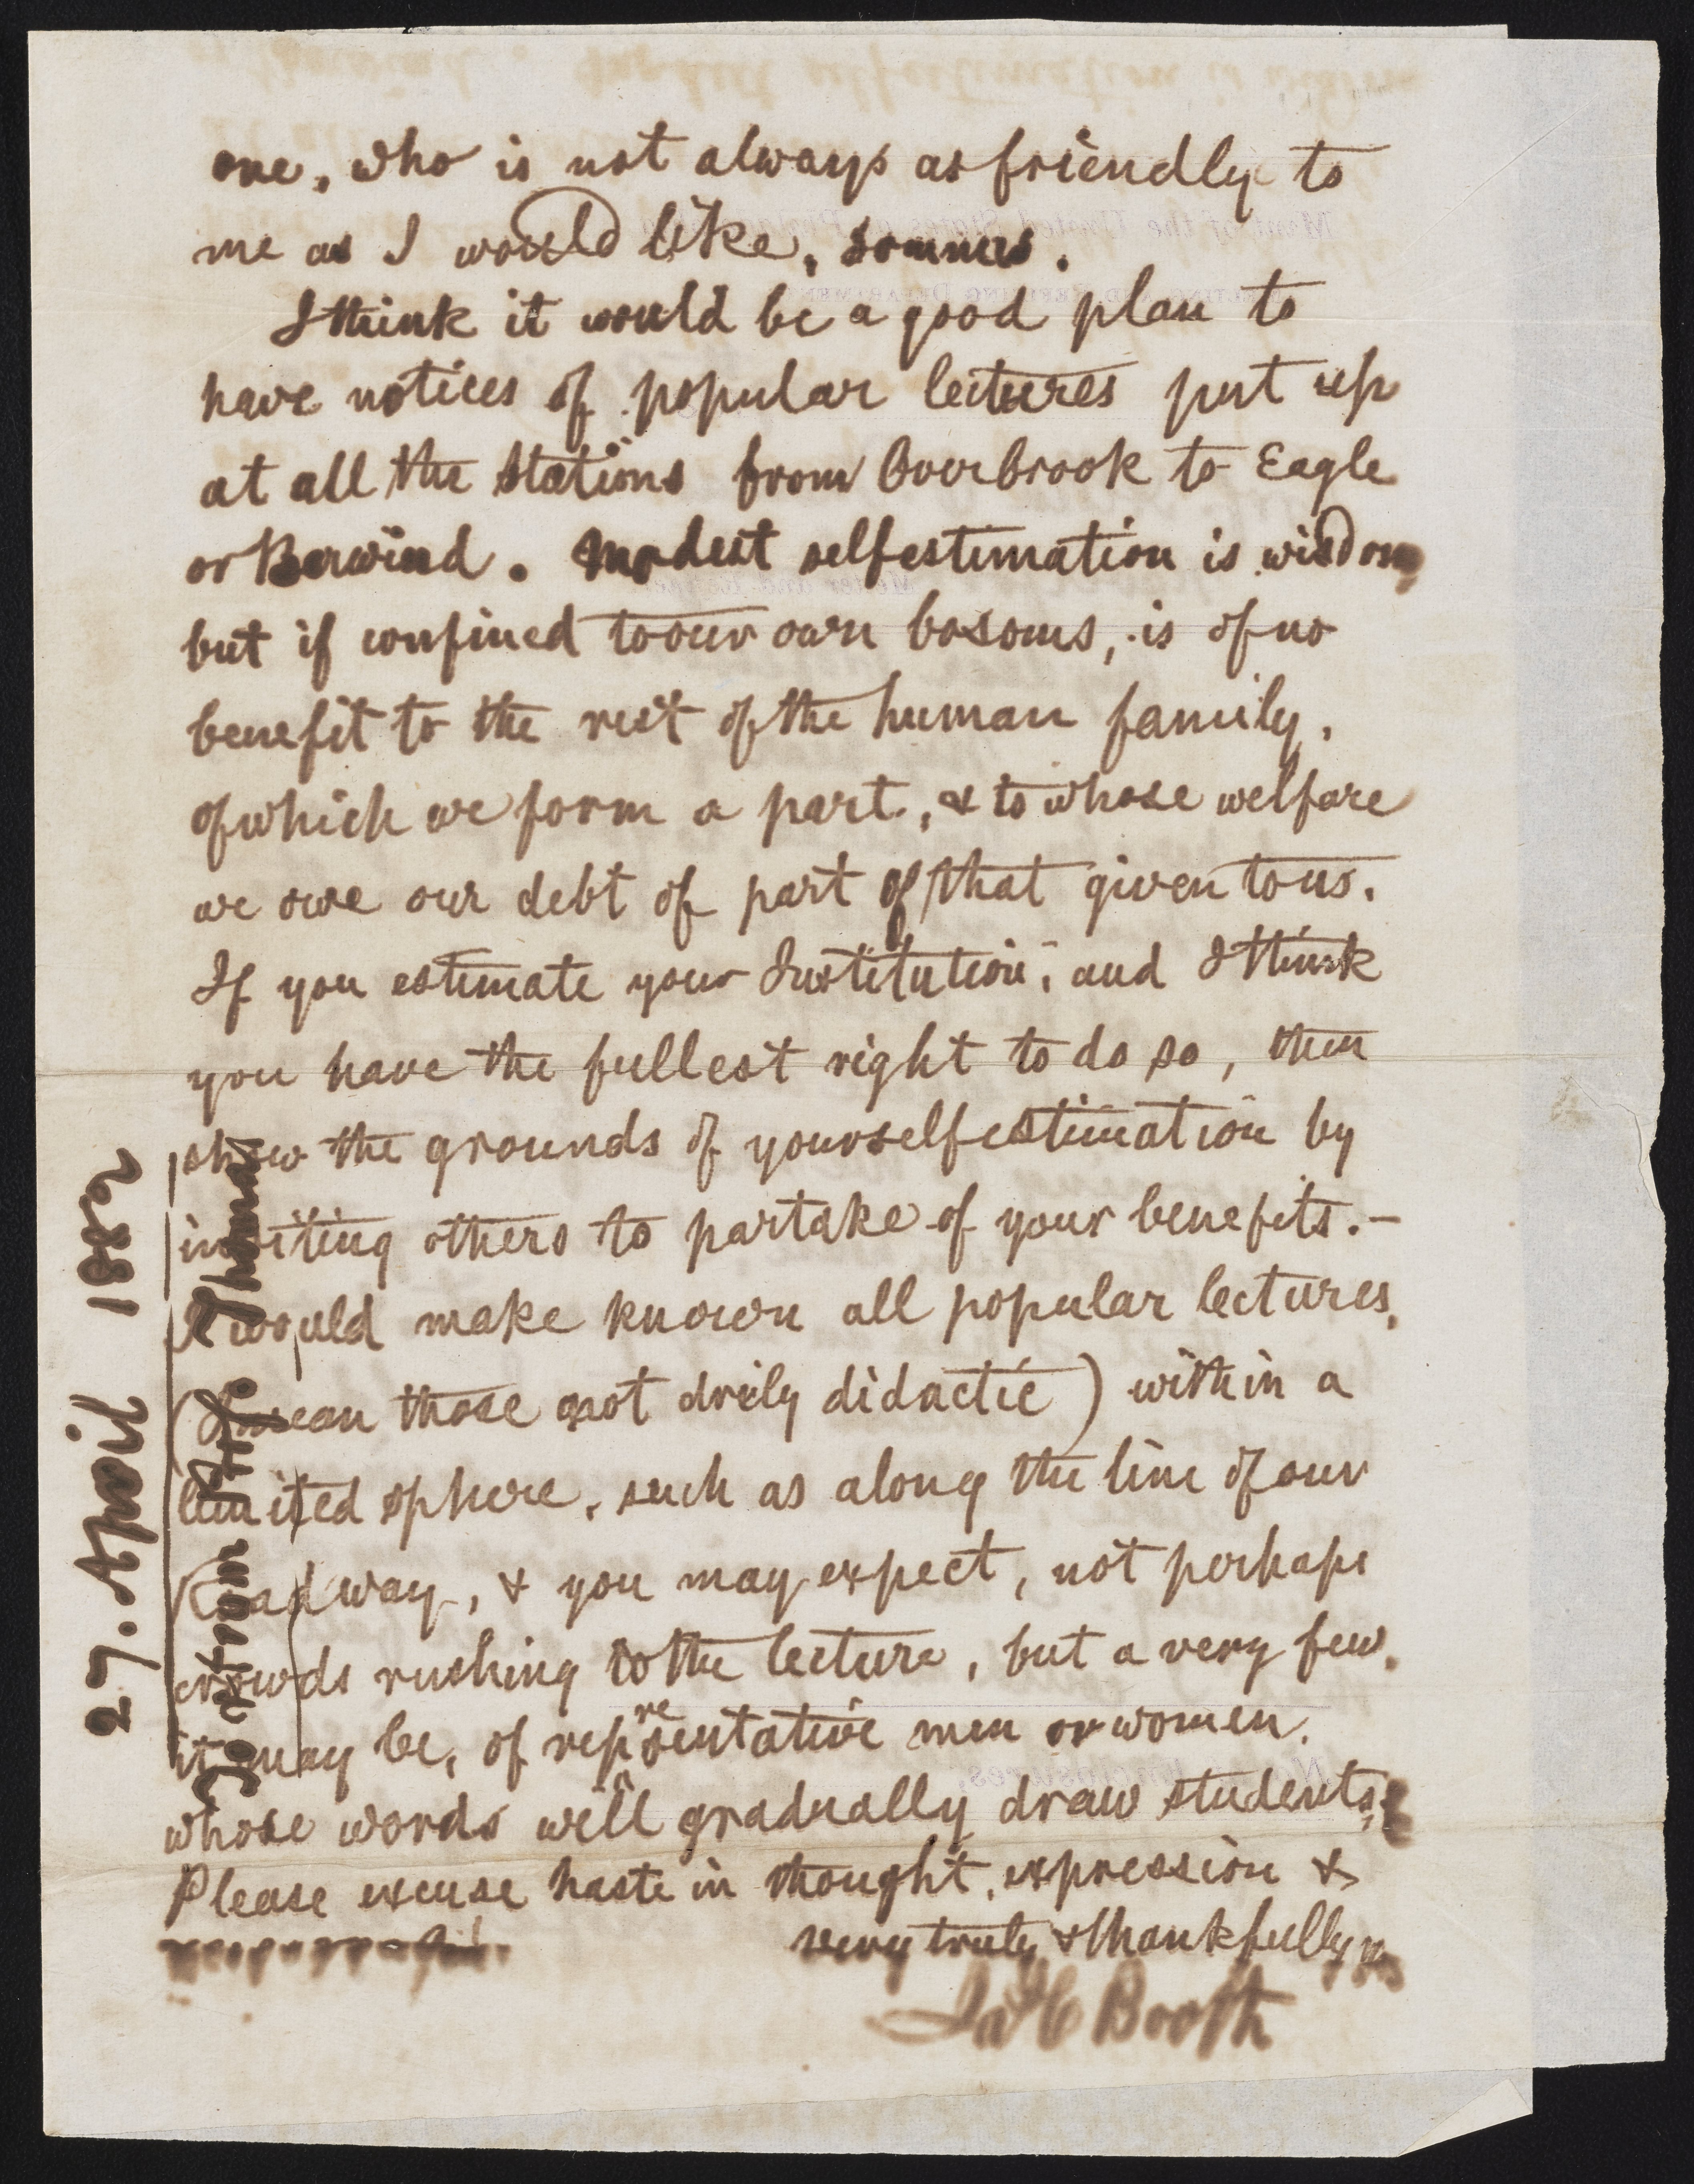 one, who is not always as friendly to
me as I would like, Somnus.
I think it would be a good plan to
have notices of popular lectures put up
at all the Stations from Overbrook to Eagle
or Berwind. Modest selfestimation is wisdom
but if confined to our own bosoms, is of no
benefit to the rest of the human family,
of which we form a part, & to whose welfare
we owe our debt of part of that given to us.
If you estimate your Institution, and I think
you have the fullest right to do so, then
show the grounds of yourselfestimation by
inviting others to partake of your benefits.—
I would make known all popular lectures,
(I mean those not drily didactic) within a
limited sphere, such as along the line of our
Roadway, & you may expect, not perhaps
crowds rushing to the lecture, but a very few,
it may be, of representative men or women,
whose words will gradually draw students.
Please excuse haste in thought, expression &
very truly & thankfully yrs
Jas C Booth
27. April 1882
To Miss Thomas